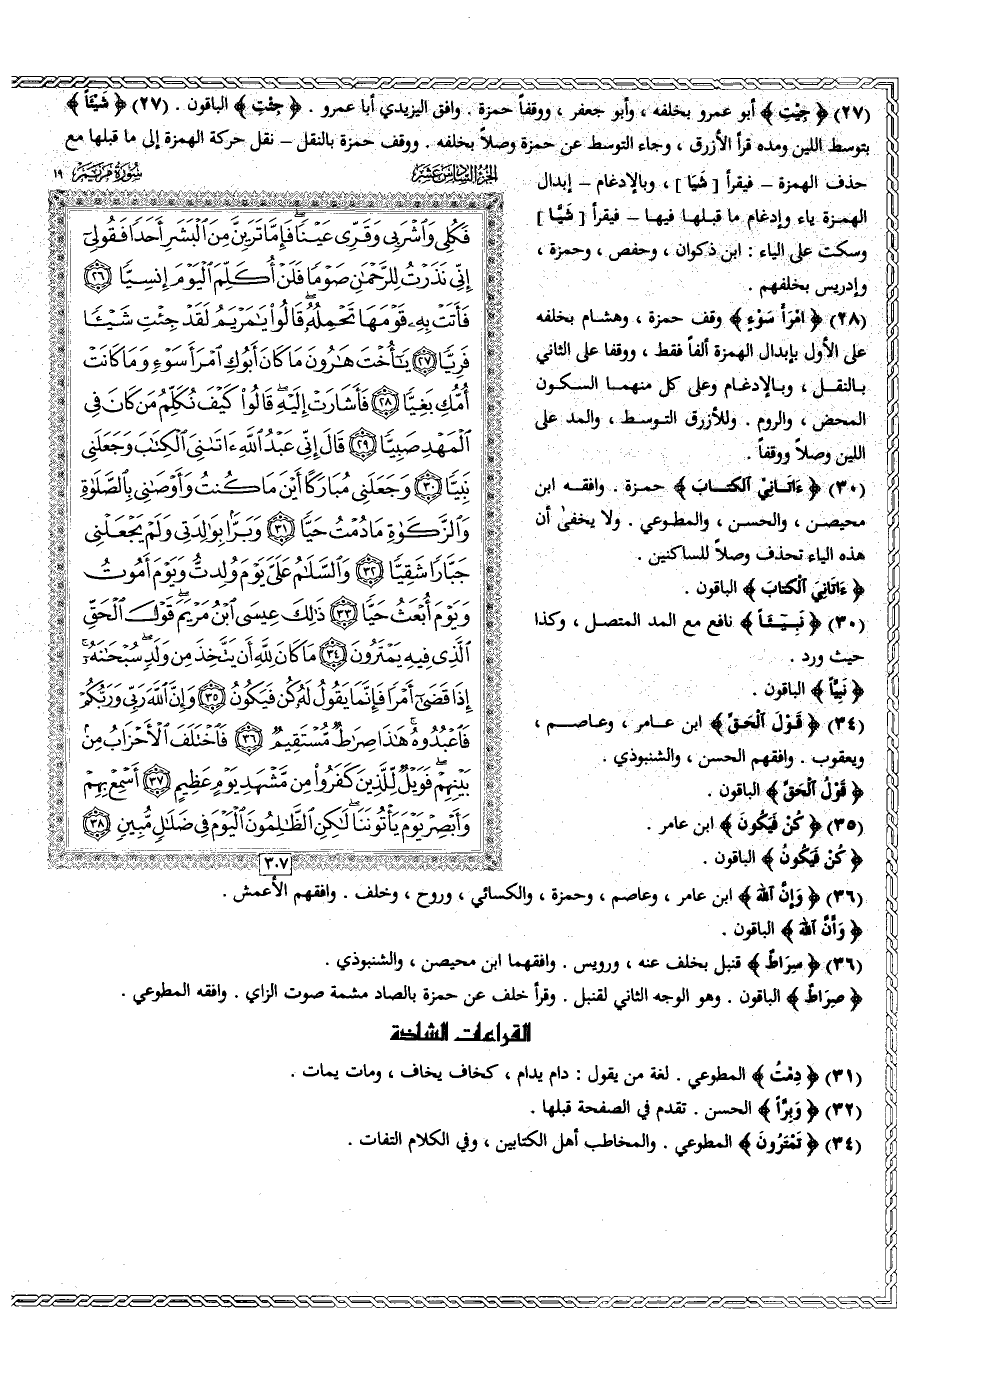 (٢٧) ﴿ جِيْتِ ﴾ أبو عمرو بخلفه ، وأبو جعفر ، ووقفاً حمزة . وافق اليزيدي أبا عمرو . ﴿ جِئْتِ ﴾ الباقون . (٢٧) ﴿ شَيْئاً ﴾
بتوسط اللين ومده قرأ الأزرق ، وجاء التوسط عن حمزة وصلاً بخلفه . ووقف حمزة بالنقل – نقل حركة الهمزة إلى ما قبلها مع
حذف الهمزة – فيقرأ [ شَيَا ] ، وبالإدغام – إبدال
الهمزة ياء وإدغام ما قبلها فيها – فيقرأ [ شَيًّا ]
وسكت على الياء : ابن ذكوان ، وحفص ، وحمزة ،
وإدريس بخلفهم .
(٢٨) ﴿ امْرَأَ سَوْءٍ ﴾ وقف حمزة ، وهشام بخلفه
على الأول بإبدال الهمزة ألفاً فقط ، ووقفا على الثاني
بالنقل ، وبالإدغام وعلى كل منهما السكون
المحض ، والروم . وللأزرق التوسط ، والمد على
اللين وصلاً ووقفاً .
(٣٠) ﴿ ءَاتَانِيْ الْكِتَابَ ﴾ حمزة . وافقه ابن
محيصن ، والحسن ، والمطوعي . ولا يخفىٰ أن
هذه الياء تحذف وصلاً للساكنين .
﴿ ءَاتَانِيَ الْكِتَابَ ﴾ الباقون .
(٣٠) ﴿ نَبِيئاً ﴾ نافع مع المد المتصل ، وكذا
حيث ورد .
﴿ نَبِيًّا ﴾ الباقون .
(٣٤) ﴿ قَوْلَ الْحَقِّ ﴾ ابن عامر ، وعاصم ،
ويعقوب . وافقهم الحسن ، والشنبوذي .
﴿ قَوْلُ الْحَقِّ ﴾ الباقون .
(٣٥) ﴿ كُنْ فَيَكُونَ ﴾ ابن عامر .
﴿ كُنْ فَيَكُونُ ﴾ الباقون .
الجزء السادس عشر سورة مريم ١٩
فَكُلِى وَٱشْرَبِى وَقَرِّى عَيْنًا ۖ فَإِمَّا تَرَيِنَّ مِنَ ٱلْبَشَرِ أَحَدًا فَقُولِىٓ
إِنِّى نَذَرْتُ لِلرَّحْمَٰنِ صَوْمًا فَلَنْ أُكَلِّمَ ٱلْيَوْمَ إِنسِيًّا ٢٦
فَأَتَتْ بِهِۦ قَوْمَهَا تَحْمِلُهُۥ ۖ قَالُوا۟ يَٰمَرْيَمُ لَقَدْ جِئْتِ شَيْـًٔا
فَرِيًّا ٢٧ يَٰٓأُخْتَ هَٰرُونَ مَا كَانَ أَبُوكِ ٱمْرَأَ سَوْءٍ وَمَا كَانَتْ
أُمُّكِ بَغِيًّا ٢٨ فَأَشَارَتْ إِلَيْهِ ۖ قَالُوا۟ كَيْفَ نُكَلِّمُ مَن كَانَ فِى
ٱلْمَهْدِ صَبِيًّا ٢٩ قَالَ إِنِّى عَبْدُ ٱللَّهِ ءَاتَىٰنِىَ ٱلْكِتَٰبَ وَجَعَلَنِى
نَبِيًّا ٣٠ وَجَعَلَنِى مُبَارَكًا أَيْنَ مَا كُنتُ وَأَوْصَٰنِى بِٱلصَّلَوٰةِ
وَٱلزَّكَوٰةِ مَا دُمْتُ حَيًّا ٣١ وَبَرًّۢا بِوَٰلِدَتِى وَلَمْ يَجْعَلْنِى
جَبَّارًا شَقِيًّا ٣٢ وَٱلسَّلَٰمُ عَلَىَّ يَوْمَ وُلِدتُّ وَيَوْمَ أَمُوتُ
وَيَوْمَ أُبْعَثُ حَيًّا ٣٣ ذَٰلِكَ عِيسَى ٱبْنُ مَرْيَمَ ۚ قَوْلَ ٱلْحَقِّ
ٱلَّذِى فِيهِ يَمْتَرُونَ ٣٤ مَا كَانَ لِلَّهِ أَن يَتَّخِذَ مِن وَلَدٍ ۖ سُبْحَٰنَهُۥٓ ۚ
إِذَا قَضَىٰٓ أَمْرًا فَإِنَّمَا يَقُولُ لَهُۥ كُن فَيَكُونُ ٣٥ وَإِنَّ ٱللَّهَ رَبِّى وَرَبُّكُمْ
فَٱعْبُدُوهُ ۚ هَٰذَا صِرَٰطٌ مُّسْتَقِيمٌ ٣٦ فَٱخْتَلَفَ ٱلْأَحْزَابُ مِنۢ
بَيْنِهِمْ ۖ فَوَيْلٌ لِّلَّذِينَ كَفَرُوا۟ مِن مَّشْهَدِ يَوْمٍ عَظِيمٍ ٣٧ أَسْمِعْ بِهِمْ
وَأَبْصِرْ يَوْمَ يَأْتُونَنَا ۖ لَٰكِنِ ٱلظَّٰلِمُونَ ٱلْيَوْمَ فِى ضَلَٰلٍ مُّبِينٍ ٣٨
٣٠٧
(٣٦) ﴿ وَإِنَّ اللهَ ﴾ ابن عامر ، وعاصم ، وحمزة ، والكسائي ، وروح ، وخلف . وافقهم الأعمش .
﴿ وَأَنَّ اللهَ ﴾ الباقون .
(٣٦) ﴿ سِرَاطٌ ﴾ قنبل بخلف عنه ، ورويس . وافقهما ابن محيصن ، والشنبوذي .
﴿ صِرَاطٌ ﴾ الباقون . وهو الوجه الثاني لقنبل . وقرأ خلف عن حمزة بالصاد مشمة صوت الزاي . وافقه المطوعي .
القراءات الشاذة
(٣١) ﴿ دِمْتُ ﴾ المطوعي . لغة من يقول : دام يدام ، كخاف يخاف ، ومات يمات .
(٣٢) ﴿ وَبِرًّا ﴾ الحسن . تقدم في الصفحة قبلها .
(٣٤) ﴿ تَمْتَرُونَ ﴾ المطوعي . والمخاطب أهل الكتابين ، وفي الكلام التفات .